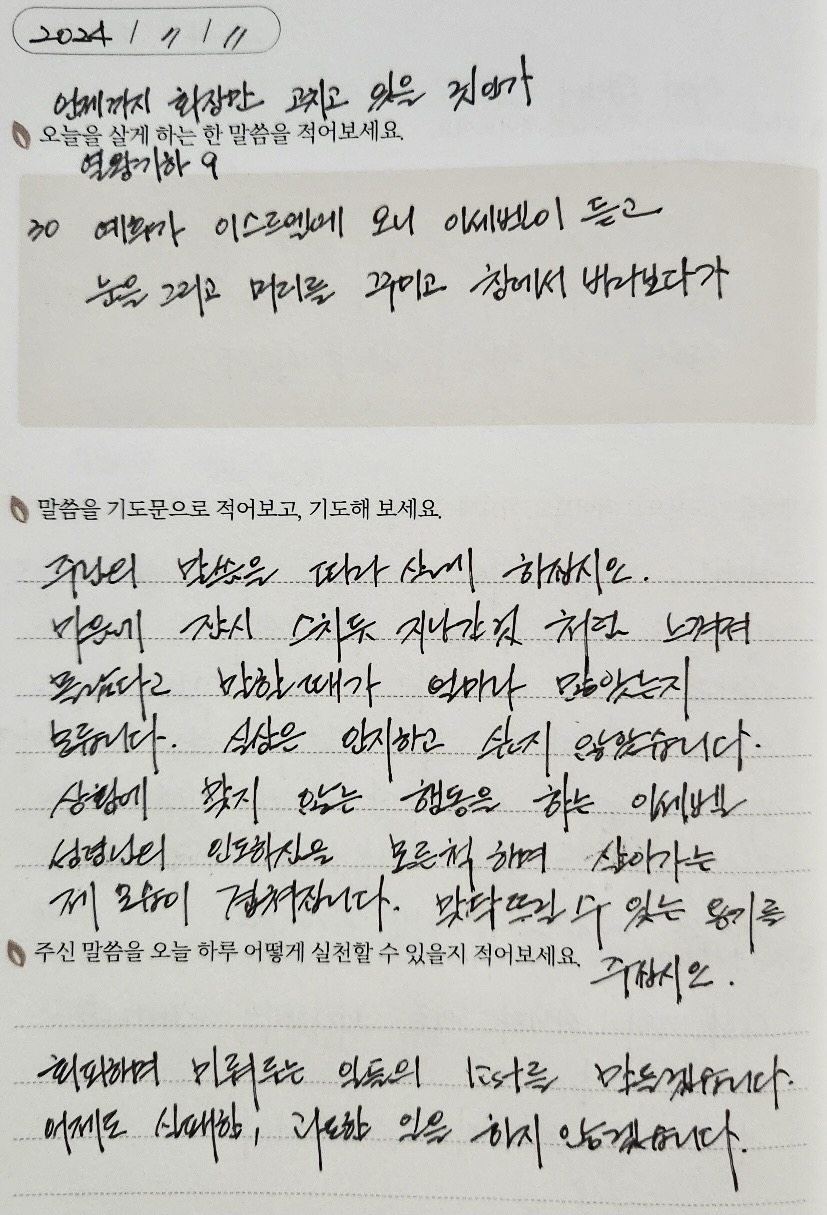 2024 / 11 / 11
언제까지 화장만 고치고 있을 것인가
오늘을 살게 하는 한 말씀을 적어보세요.
열왕기하 9
30 예후가 이스르엘에 오니 이세벨이 듣고
눈을 그리고 머리를 꾸미고 창에서 바라보다가
말씀을 기도문으로 적어보고, 기도해 보세요.
주님의 말씀을 따라 살게 하십시오.
마음에 잠시 스치듯 지나간 것 처럼 느껴져
몰랐다고 말한 때가 얼마나 많았는지
모릅니다. 실상은 인지하고 싶지 않았습니다.
상황에 맞지 않는 행동을 하는 이세벨
성령님의 인도하심을 모른척 하며 살아가는
제 모습이 겹쳐집니다. 맞닥뜨릴 수 있는 용기를
주십시오.
주신 말씀을 오늘 하루 어떻게 실천할 수 있을지 적어보세요.
회피하며 미뤄두는 일들의 순서를 만들겠습니다.
어제도 실패한, 과도한 일을 하지 않겠습니다.